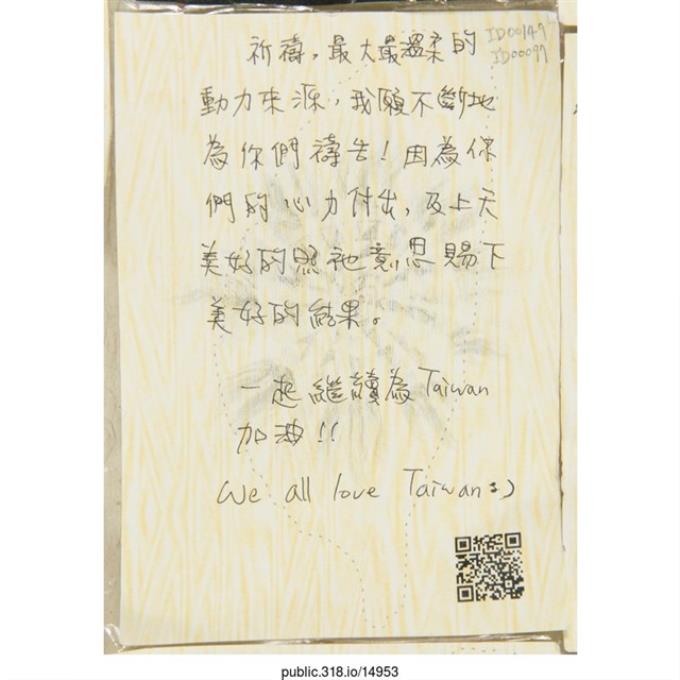 祈禱，最大最溫柔的
ID00147
ID00097
動力來源，我願不斷地
為你們禱告！因為你
們的心力付出，及上天
美好的照祂意思賜下
美好的結果。
一起繼續為Taiwan
加油!!
We all love Taiwan :)
public.318.io/14953